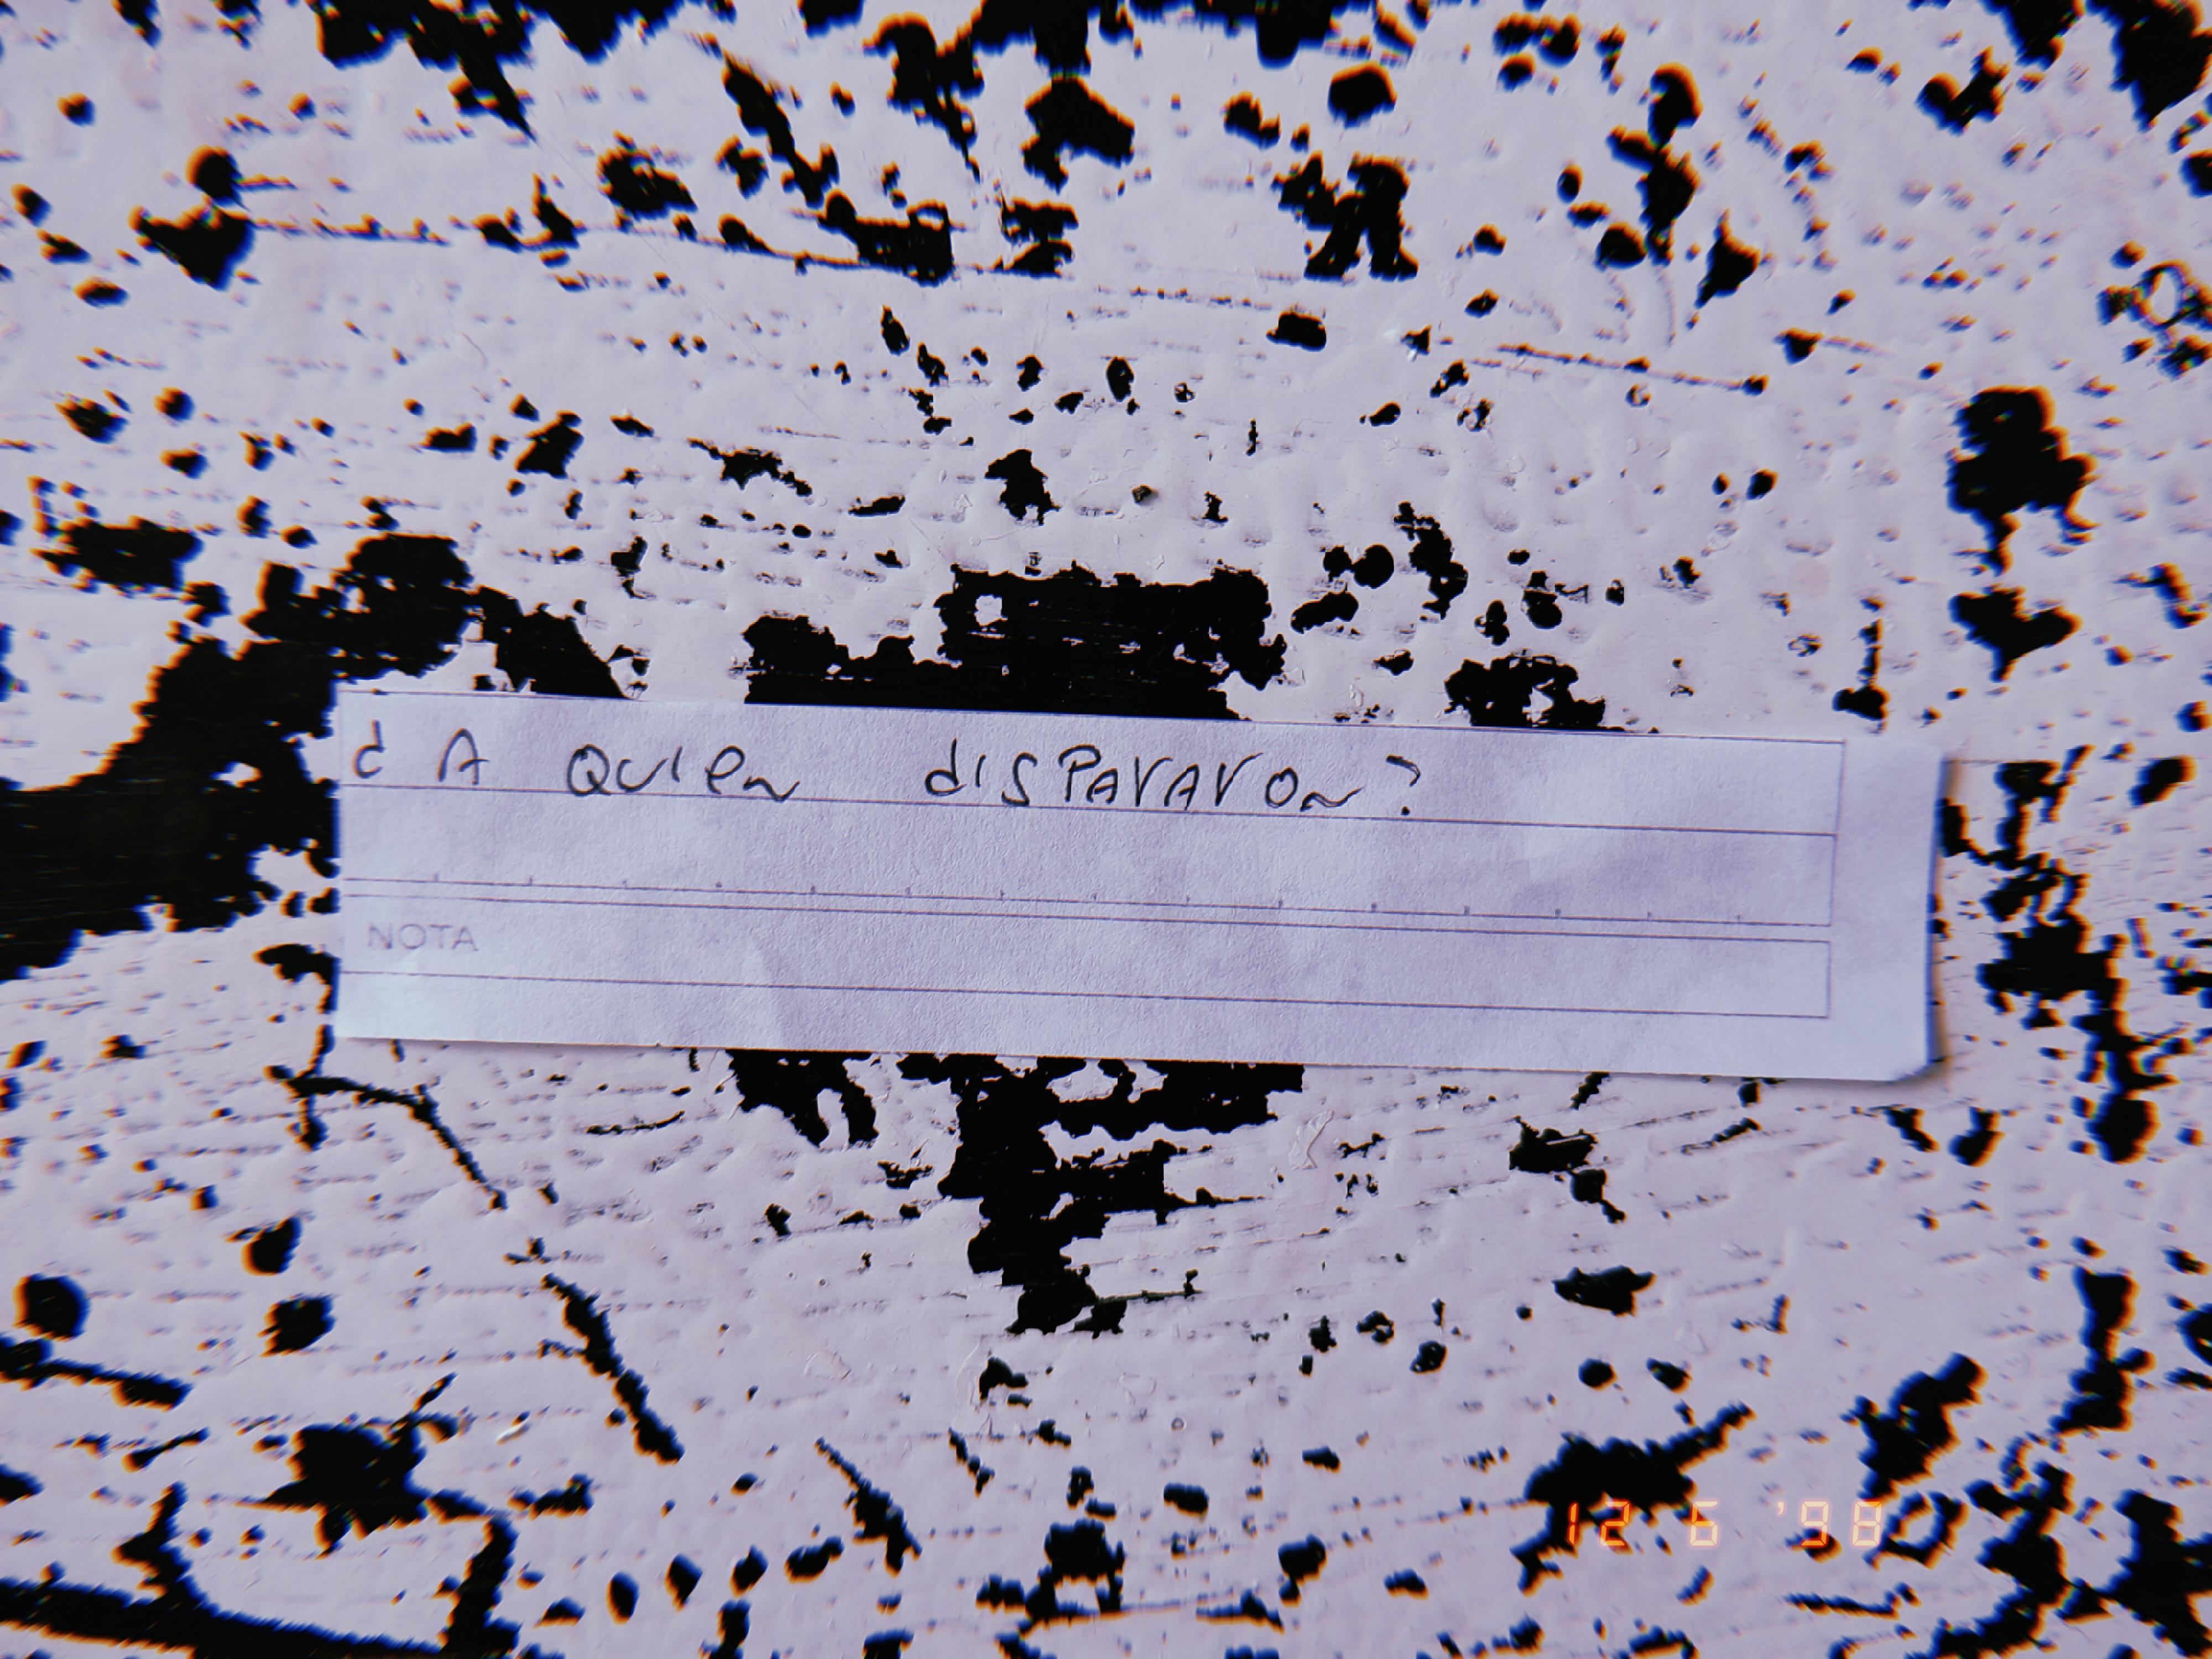 ¿ A QUIEN DISPARARON?
NOTA
12 6 '98